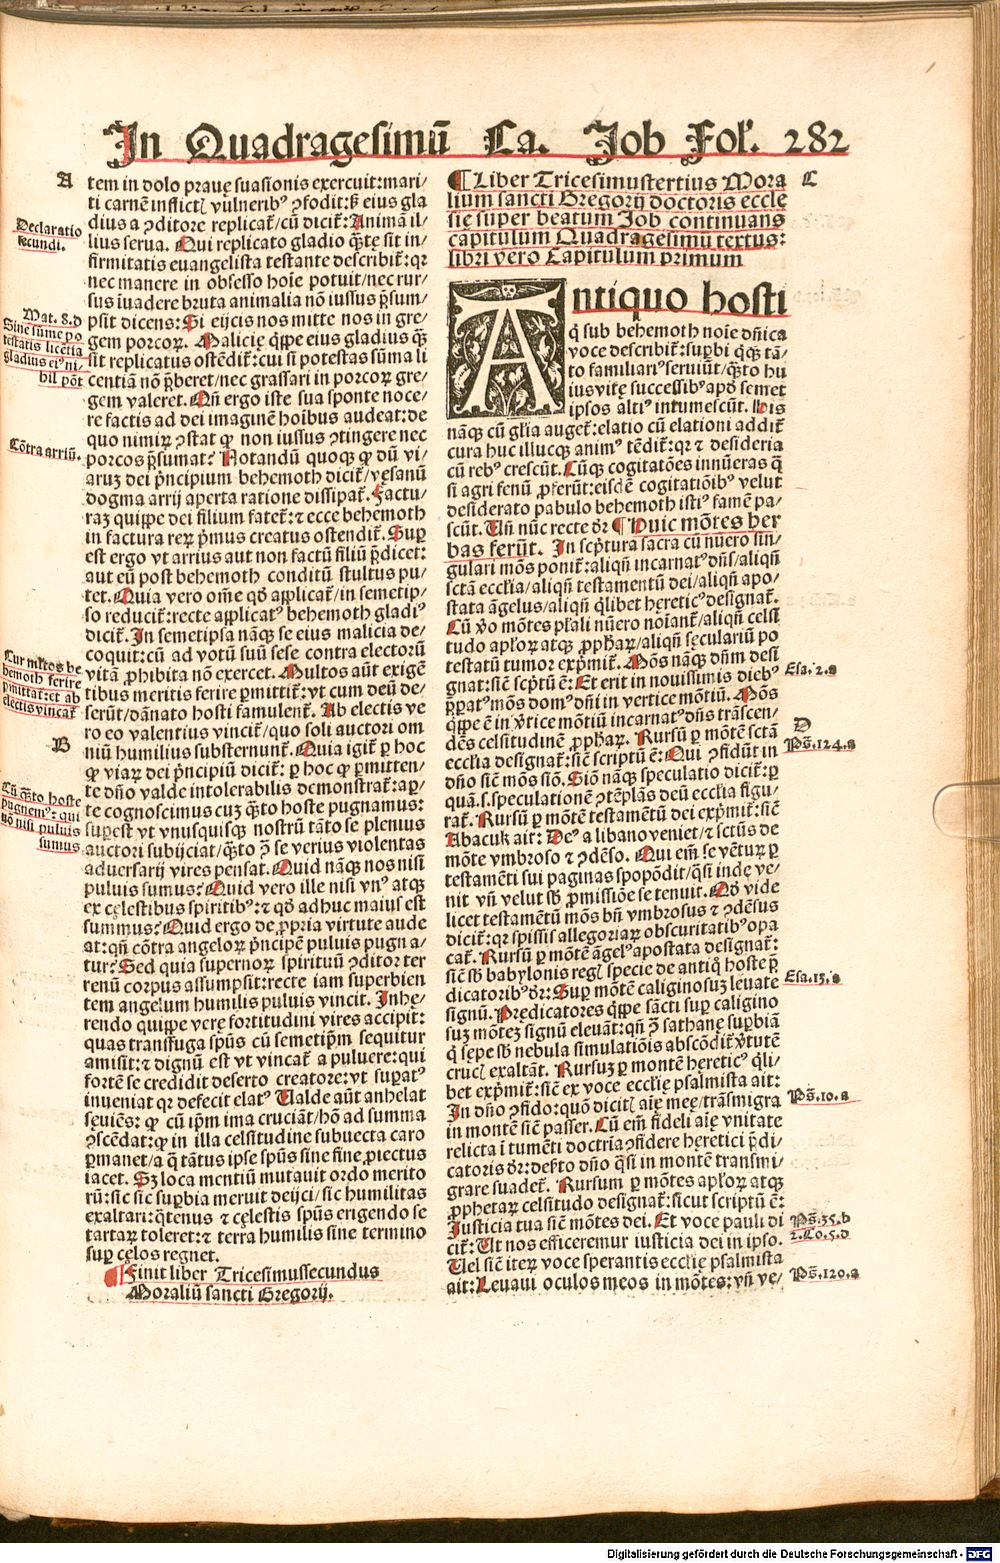 In Quadragesimū Ca. Job Fol'. 282
A
tem in dolo prauę suasionis exercuit: mari/
ti carnē inflictꝭ vulneribꝰ ꝯfodit: sꝫ eius gla
dius a ꝯditore replicat̄/cū dicit̄: Animā il/
lius serua. Qui replicato gladio q̄te sit in/
firmitatis euangelista testante describit̄: qꝛ
nec manere in obsesso hoīe potuit/nec rur/
sus īuadere bruta animalia nō iussus p̄sum/
psit dicens: Si eijcis nos mitte nos in gre/
gem porcoꝝ. Malicię q̄ppe eius gladius q̄ꝫ
sit replicatus ostēdit̄: cui si potestas sūma li
centiā nō p̄beret/nec grassari in porcoꝝ gre/
gem valeret. Qn̄ ergo iste sua sponte noce/
re factis ad dei imaginē hoībus audeat: de
quo nimiꝝ ꝯstat ꝙ non iussus ꝯtingere nec
porcos p̄sumat? Notandū quoqꝫ ꝙ dū vi/
aruꝫ dei p̄ncipium behemoth dicit̄/vęsanū
dogma arrij aperta ratione dissipat̄. Factu/
raꝫ quippe dei filium fatet̄: ⁊ ecce behemoth
in factura reꝝ p̄mus creatus ostendit̄. Suꝑ
est ergo vt arrius aut non factū filiū p̄dicet:
aut eū post behemoth conditū stultus pu/
tet. Quia vero om̄e qd̄ applicat̄/in semetip/
so reducit̄: recte applicatꝰ behemoth gladiꝰ
dicit̄. In semetipsa nāqꝫ se eius malicia de/
coquit: cū ad votū suū sese contra electorū
vitā ꝓhibita nō exercet. Multos aūt exigē
tibus meritis ferire ꝑmittit̄: vt cum deū de/
serūt/dānato hosti famulent̄. Ab electis ve
ro eo valentius vincit̄/quo soli auctori om
niū humilius substernunt̄. Quia igit̄ ꝑ hoc
ꝙ viaꝝ dei p̄ncipiū dicit̄: ꝑ hoc ꝙ ꝑmitten/
te dn̄o valde intolerabilis demonstrat̄: aꝑ/
te cognoscimus cuꝫ q̄to hoste pugnamus:
suꝑest vt vnusquisqꝫ nostrū tāto se plenius
auctori subijciat/q̄to ꝯ̄ se verius violentas
aduersarij vires pensat. Quid nāqꝫ nos nisi
puluis sumus? Quid vero ille nisi vnꝰ atqꝫ
ex cęlestibus spiritibꝰ: ⁊ qd̄ adhuc maius est
summus? Quid ergo de ꝓpria virtute aude
at: qn̄ cōtra angeloꝝ p̄ncipē puluis pugna/
tur? Sed quia supernoꝝ spirituū ꝯditor ter
renū corpus assumpsit: recte iam superbien
tem angelum humilis puluis vincit. Inhę/
rendo quippe verę fortitudini vires accipit:
quas transfuga spūs cū semetip̄m sequitur
amisit: ⁊ dignū est vt vincat̄ a puluere: qui
fortē se credidit deserto creatore: vt suꝑatꝰ
inueniat qꝛ defecit elatꝰ Ualde aūt anhelat
sęuiēs: ꝙ cū ip̄m ima cruciāt/hō ad summa
ꝯscēdat: ꝙ in illa celsitudine subuecta caro
ꝑmanet/a q̄ tātus ipse spūs sine fine ꝓiectus
iacet. Sꝫ loca mentiū mutauit ordo merito
rū: sic sic suꝑbia meruit deijci/sic humilitas
exaltari: q̄tenus ⁊ cęlestis spūs erigendo se
tartaꝝ toleret: ⁊ terra humilis sine termino
suꝑ cęlos regnet.
¶ Finit liber Tricesimussecundus
Moraliū sancti Gregorij.
Declaratio
secundi.
Mat. 8. d
Sine sūme po
testatis licētia
gladius eiꝰ ni/
hil pōt
Cōtra arriū.
Cur ml̄tos be
hemoth ferire
ꝑmittat: et ab
electis vincat̄
B
Cū q̄to hoste
pugnemꝰ: qui
nō nisi puluis
sumus
¶ Liber Tricesimustertius Mora
lium sancti Gregorij doctoris eccle
się super beatum Job continuans
capitulum Quadragesimū textus:
libri vero Capitulum primum
C
Antiquo hosti
q̄ sub behemoth noīe dn̄ica
voce describit̄: suꝑbi q̄qꝫ tā/
to familiariꝰ seruiūt/q̄to hu
ius vitę successibꝰ apd̄ semet
ipsos altiꝰ intumescūt. His
nāqꝫ cū gl̄ia auget̄: elatio cū elationi addit̄
cura huc illucqꝫ animꝰ tēdit̄: qꝛ ⁊ desideria
cū rebꝰ crescūt. Cūqꝫ cogitatōes innūeras q̄
si agri fenū ꝓferūt: eisdē cogitatiōibꝰ velut
desiderato pabulo behemoth istiꝰ famē pa/
scūt. Un̄ nūc recte dr̄ ¶ Huic mōtes her
bas ferūt. In scp̄tura sacra cū nūero sin/
gulari mōs ponit̄: aliqn̄ incarnatꝰ dn̄s/aliqn̄
sctā eccl̄ia/aliqn̄ testamentū dei/aliqn̄ apo/
stata āgelus/aliqn̄ q̄libet hęreticꝰ designat̄.
Cū v̄o mōtes pl̄ali nūero noīant̄/aliqn̄ celsi
tudo apl̄oꝝ atqꝫ ꝓphaꝝ/aliqn̄ sęculariū po
testatū tumor exp̄mit̄. Mōs nāqꝫ dn̄m desi
gnat: sic̄ scp̄tū ē: Et erit in nouissimis diebꝰ
p̄patꝰ mōs domꝰ dn̄i in vertice mōtiū. Mōs
q̄ppe ē in v̄tice mōtiū incarnatꝰ dn̄s trāscen/
dēs celsitudinē ꝓphaꝝ. Rursū ꝑ mōtē sctā
eccl̄ia designat̄: sic̄ scriptū ē: Qui ꝯfidūt in
dn̄o sic̄ mōs siō. Siō nāqꝫ speculatio dicit̄: ꝑ
quā .s. speculationē ꝯtēplās deū eccl̄ia figu/
rat̄. Rursū ꝑ mōtē testamētū dei exp̄mit̄: sic̄
Abacuk ait: Deꝰ a libano veniet/⁊ sctūs de
mōte vmbroso ⁊ ꝯdēso. Qui em̄ se vēturꝝ ꝑ
testamēti sui paginas spopōdit/q̄si inde ve/
nit vn̄ velut sb̄ ꝓmissiōe se tenuit. Qd̄ vide
licet testamētū mōs bn̄ vmbrosus ⁊ ꝯdēsus
dicit̄: qꝛ spissis allegoriaꝝ obscuritatibꝰ opa
cat̄. Rursū ꝑ mōtē āgelꝰ apostata designat̄:
sic̄ sb̄ babylonis regꝭ specie de antiq̄ hoste p̄
dicatoribꝰ dr̄: Suꝑ mōtē caliginosuꝫ leuate
signū. Prędicatores q̄ppe sācti suꝑ caligino
suꝫ mōteꝫ signū eleuāt: qn̄ ꝯ̄ sathanę suꝑbiā
q̄ sępe sb̄ nebula simulatiōis abscōdit̄ v̄tutē
crucꝭ exaltāt. Rursuꝫ ꝑ montē hęreticꝰ q̄li/
bet exp̄mit̄: sic̄ ex voce eccl̄ię psalmista ait:
In dn̄o ꝯfido: quō dicitꝭ aīę męę/trāsmigra
in montē sic̄ passer. Cū em̄ fideli aīę vnitate
relicta ī tumēti doctrīa ꝯfidere hęretici p̄di/
catoris dr̄: dek̄to dn̄o q̄si in montē transmi/
grare suadet̄. Rursum ꝑ mōtes apl̄oꝝ atqꝫ
ꝓphetaꝝ celsitudo designat̄: sicut scriptū ē:
Justicia tua sic̄ mōtes dei. Et voce pauli di
cit̄: Ut nos efficeremur iusticia dei in ipso.
Uel sic̄ iteꝝ voce sperantis eccl̄ię psalmista
ait: Leuaui oculos meos in mōtes: vn̄ ve/
Esa. 2. a
D
Ps̄. 124. a
Esa. 13. a
Ps̄. 10. a
Ps̄. 35. b
2. Co. 5. d
Ps̄. 120. a
Digitalisierung gefördert durch die Deutsche Forschungsgemeinschaft - DFG